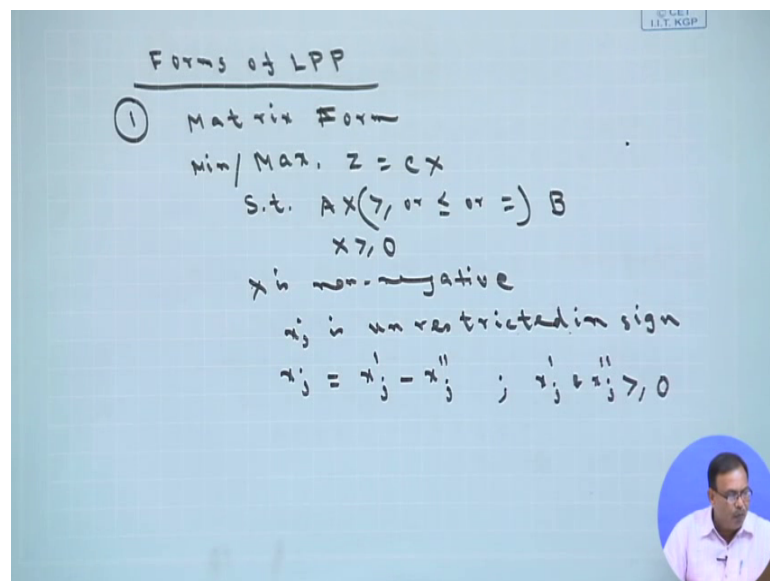 © CET
I.I.T. KGP
Forms of LPP
① Matrix Form
Min/Max. Z = CX
S.t. AX(≥, or ≤ or =) B
X ≥, 0
X is non-negative
xj is unrestricted in sign
xj = x'j - x''j ; x'j & x''j ≥, 0